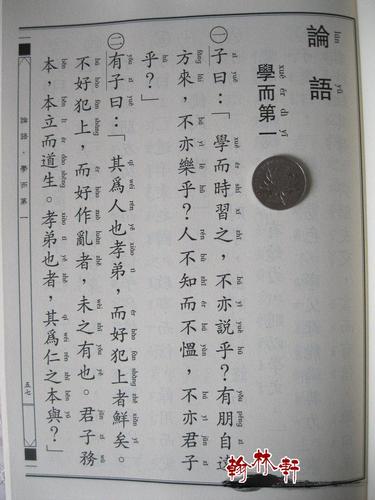 論語
lún yǔ
學而第一
xué ér dì yī
㊀子曰：「學而時習之，不亦說乎？有朋自遠
方來，不亦樂乎？人不知而不慍，不亦君子
乎？」
㊁有子曰：「其爲人也孝弟，而好犯上者鮮矣。
不好犯上，而好作亂者，未之有也。君子務
本，本立而道生。孝弟也者，其爲仁之本與？」
論語·學而第一
五七
翰林軒